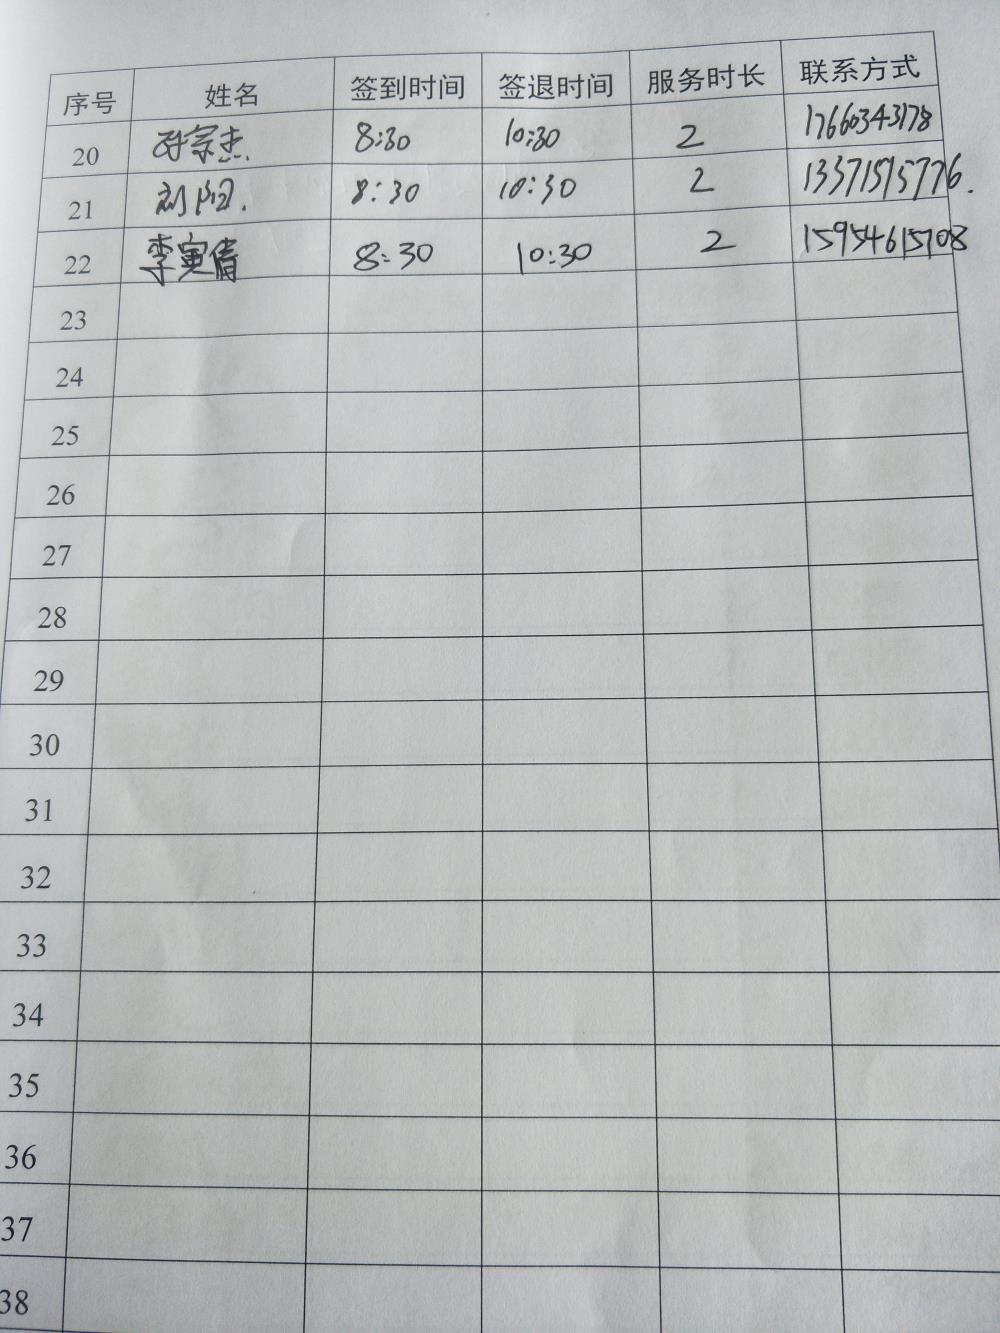 序号 姓名 签到时间 签退时间 服务时长 联系方式
20 孙宗杰 8:30 10:30 2 17660343178
21 刘阳. 8:30 10:30 2 13371515776.
22 李寅倩 8:30 10:30 2 15954615708
23
24
25
26
27
28
29
30
31
32
33
34
35
36
37
38